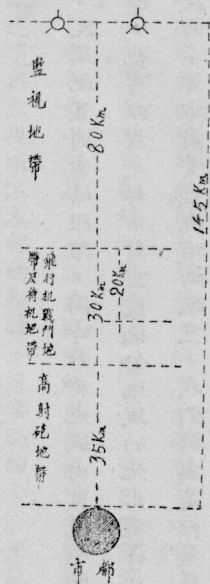 監視地帶
80Km
145Km
飛行机戰鬥地
帶及待机地帶
30Km
20Km
高射砲地帶
35Km
都市